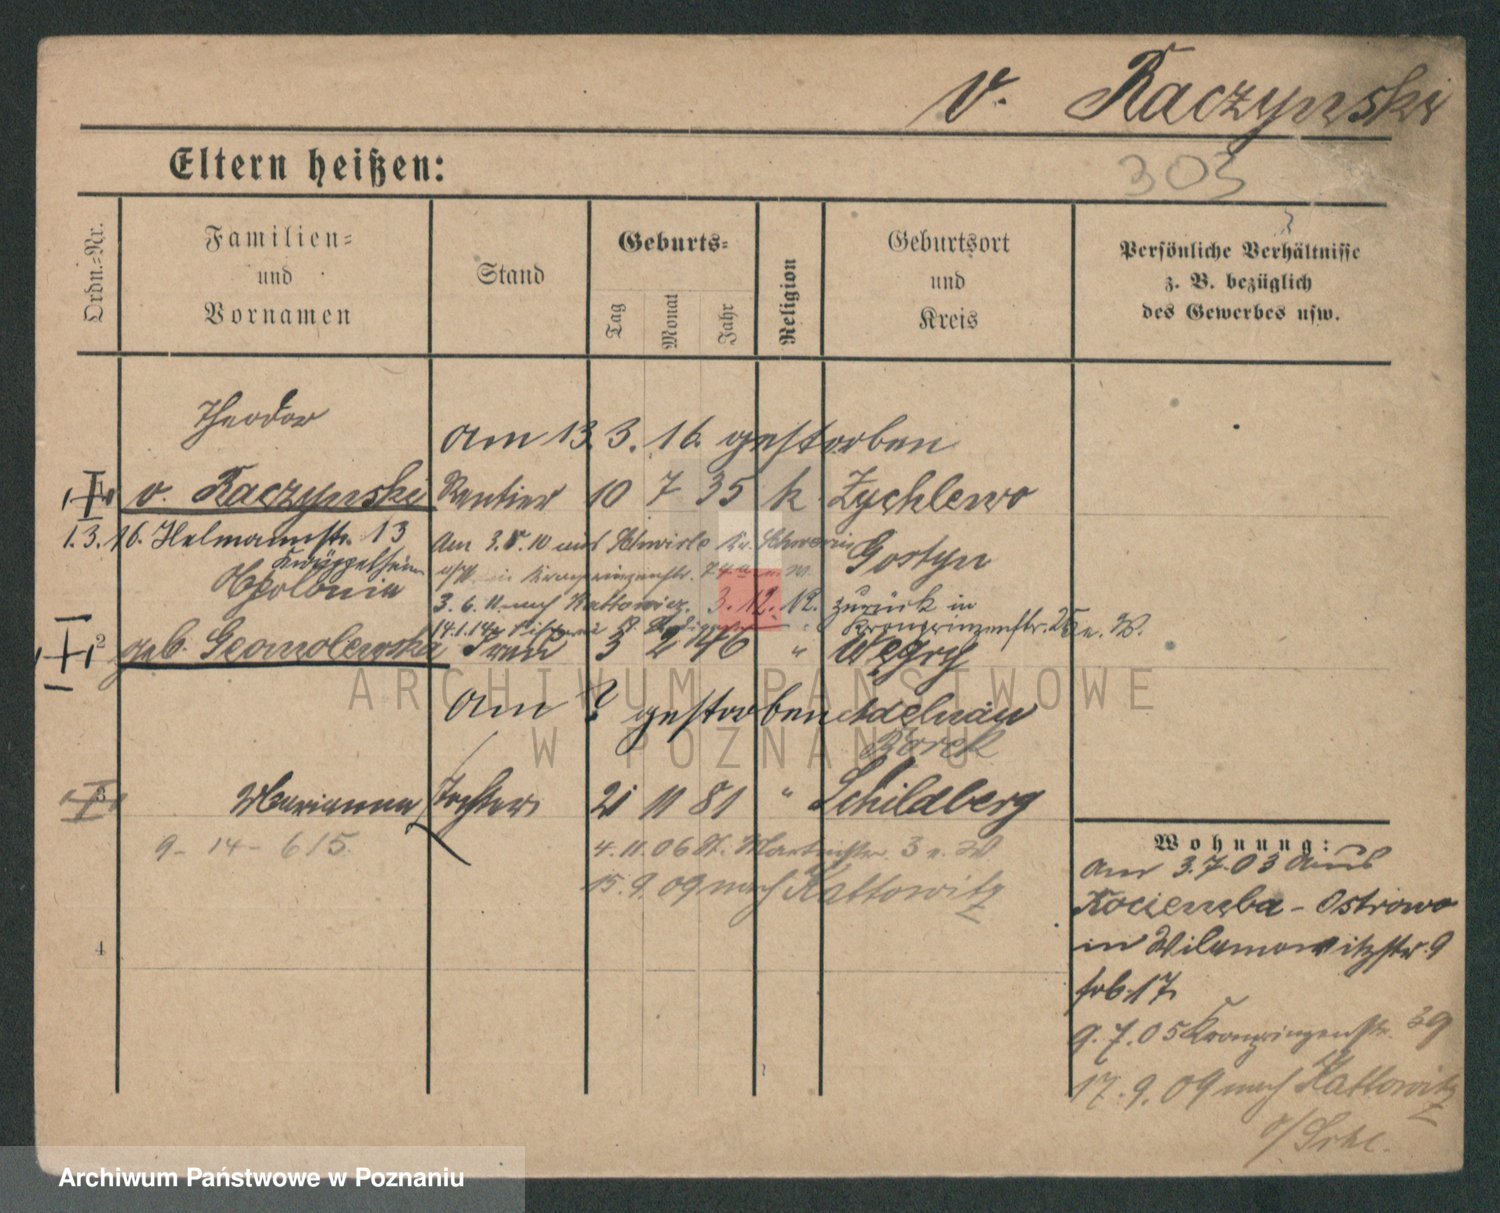 v. Raczynski
Eltern heißen:
303
Ordn.-Nr.
Familien-
und
Vornamen
Stand
Geburts-
Tag
Monat
Jahr
Religion
Geburtsort
und
Kreis
Persönliche Verhältnisse
z. B. bezüglich
des Gewerbes usw.
Theodor
am 13. 3. 16. gestorben
1 v. Raczynski Rentier 10 7 35 k Zychlewo
1. 3. 16. 13
Am 3. 8. 10 aus
Gostyn
Apolonia
3. 6. 11 nach Kattowicz. 3. 12. 12. zurück in
14.1.14
Kronprinzenstr. 25 e. W.
2 geb. Frau 3 2 46 " Węgry
am ? gestorben Adelnau
Borek
3 Marianna Tochter 21 11 81 " Schildberg
9 - 14 - 615
4. 11. 06 St. Martinstr. 3 e. W
15. 9. 09 nach Kattowitz
4
Wohnung:
am 3. 7. 03 aus
Kociemba - Ostrowo
in Wilamowitzstr. 9
frb. 17
9. 7. 05 Kronprinzenstr. 39
17. 9. 09 nach Kattowitz
ARCHIWUM PAŃSTWOWE
W POZNANIU
Archiwum Państwowe w Poznaniu